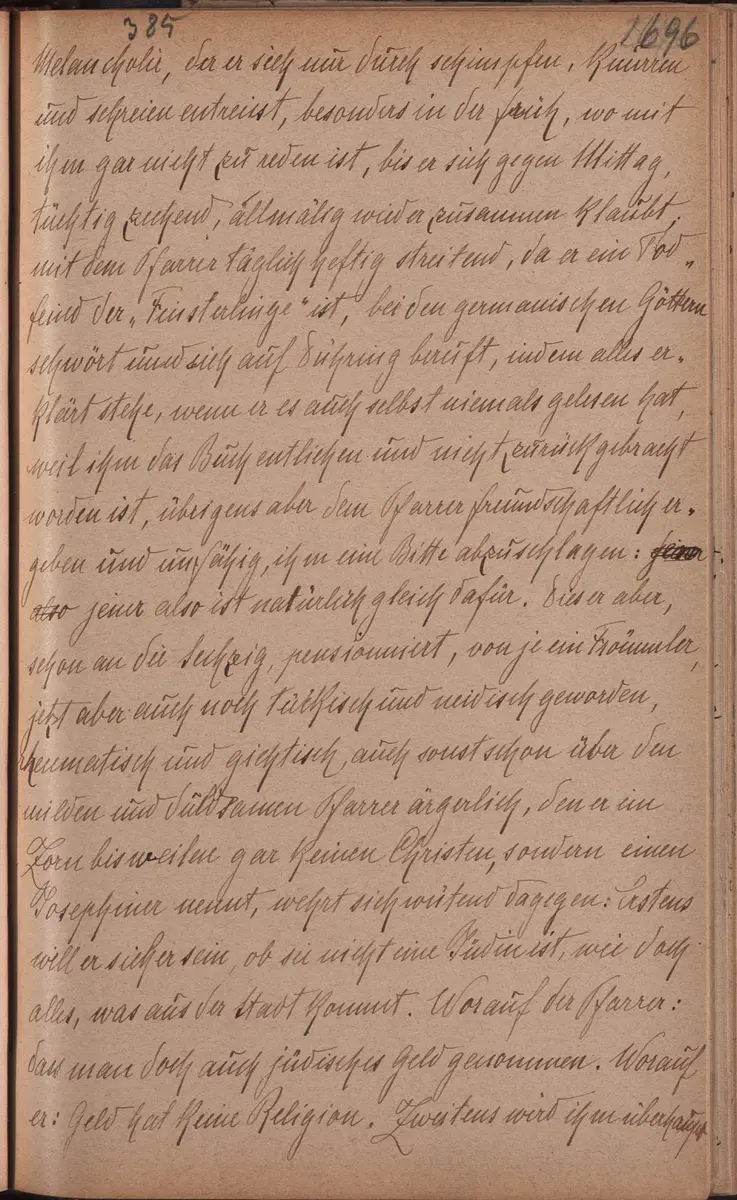 385 1696
Melancholie, der er sich nur durch schimpfen, Knurren
und schreien entreisst, besonders in der früh, wo mit
ihm gar nicht zu reden ist, bis er sich gegen Mittag,
tüchtig zechend, allmälig wieder zusammen klaubt,
mit dem Pfarrer täglich heftig streitend, da er ein Tod„
feind der „Finsterlinge" ist, bei den germanischen Göttern
schwört und sich auf Dühring beruft, in dem alles er„
klärt stehe, wenn er es auch selbst niemals gelesen hat,
weil ihm das Buch entliehen und nicht zurückgebracht
worden ist, übrigens aber dem Pfarrer freundschaftlich er„
geben und unfähig, ihm eine Bitte abzuschlagen: jener
also jener also ist natürlich gleich dafür. Dieser aber,
schon an die Sechzig, pensionniert, von je ein Frömmler,
jetzt aber auch noch tückisch und neidisch geworden,
rheumatisch und gichtisch, auch sonst schon über den
milden und duldsamen Pfarrer ärgerlich, den er im
Zorn bisweilen gar keinen Christen, sondern einen
Josephiner nennt, wehrt sich wütend dagegen: Erstens
will er sicher sein, ob sie nicht eine Jüdin ist, wie doch
alles, was aus der Stadt kommt. Worauf der Pfarrer:
dass man doch auch jüdisches Geld genommen. Worauf
er: Geld hat keine Religion. Zweitens wird ihm überhaupt